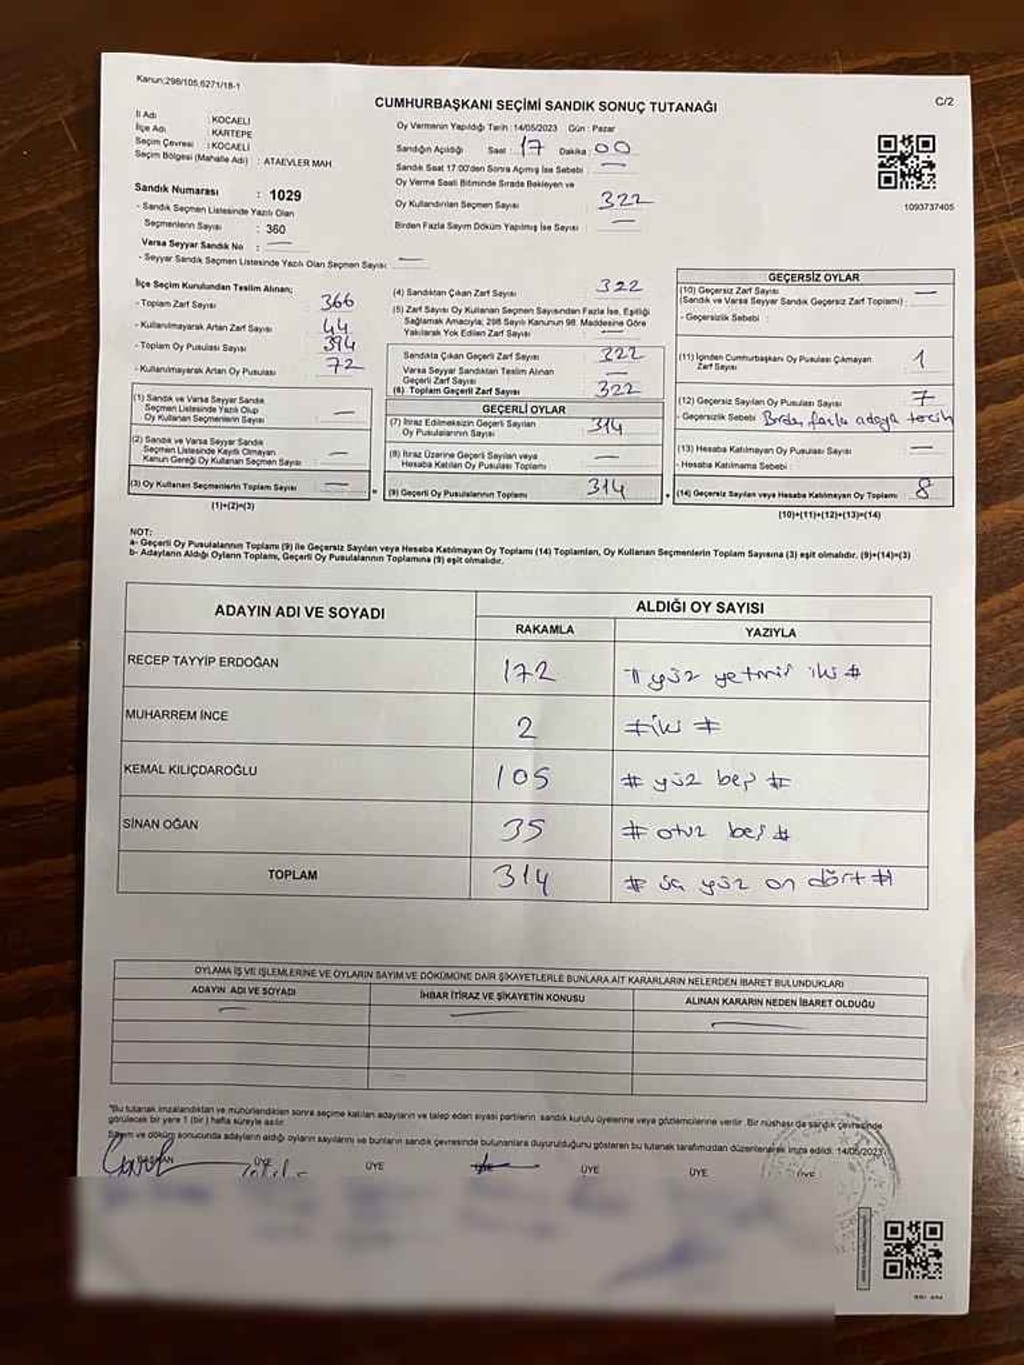 Kanun:298/105,6271/18-1
C/2
CUMHURBAŞKANI SEÇİMİ SANDIK SONUÇ TUTANAĞI
İl Adı : KOCAELİ
İlçe Adı : KARTEPE
Seçim Çevresi : KOCAELİ
Seçim Bölgesi (Mahalle Adı) : ATAEVLER MAH.
Sandık Numarası : 1029
- Sandık Seçmen Listesinde Yazılı Olan
Seçmenlerin Sayısı : 360
Varsa Seyyar Sandık No : —
- Seyyar Sandık Seçmen Listesinde Yazılı Olan Seçmen Sayısı : —
Oy Vermenin Yapıldığı Tarih :14/05/2023 Gün : Pazar
Sandığın Açıldığı Saat : 17 Dakika : 00
Sandık Saat 17:00'den Sonra Açılmış İse Sebebi : —
Oy Verme Saati Bitiminde Sırada Bekleyen ve
Oy Kullandırılan Seçmen Sayısı : 322
Birden Fazla Sayım Döküm Yapılmış İse Sayısı : —
1093737405
İlçe Seçim Kurulundan Teslim Alınan;
- Toplam Zarf Sayısı : 366
- Kullanılmayarak Artan Zarf Sayısı : 44
- Toplam Oy Pusulası Sayısı : 394
- Kullanılmayarak Artan Oy Pusulası : 72
(1) Sandık ve Varsa Seyyar Sandık
Seçmen Listesinde Yazılı Olup
Oy Kullanan Seçmenlerin Sayısı : —
(2) Sandık ve Varsa Seyyar Sandık
Seçmen Listesinde Kayıtlı Olmayan
Kanun Gereği Oy Kullanan Seçmen Sayısı : —
(3) Oy Kullanan Seçmenlerin Toplam Sayısı : —
(1)+(2)=(3)
=
(4) Sandıktan Çıkan Zarf Sayısı : 322
(5) Zarf Sayısı Oy Kullanan Seçmen Sayısından Fazla İse, Eşitliği
Sağlamak Amacıyla; 298 Sayılı Kanunun 98. Maddesine Göre
Yakılarak Yok Edilen Zarf Sayısı : —
Sandıkta Çıkan Geçerli Zarf Sayısı : 322
Varsa Seyyar Sandıktan Teslim Alınan
Geçerli Zarf Sayısı : —
(6) Toplam Geçerli Zarf Sayısı : 322
GEÇERLİ OYLAR
(7) İtiraz Edilmeksizin Geçerli Sayılan
Oy Pusulalarının Sayısı : 314
(8) İtiraz Üzerine Geçerli Sayılan veya
Hesaba Katılan Oy Pusulası Toplamı : —
(9) Geçerli Oy Pusulalarının Toplamı : 314
+
GEÇERSİZ OYLAR
(10) Geçersiz Zarf Sayısı : —
(Sandık ve Varsa Seyyar Sandık Geçersiz Zarf Toplamı)
- Geçersizlik Sebebi :
(11) İçinden Cumhurbaşkanı Oy Pusulası Çıkmayan
Zarf Sayısı : 1
(12) Geçersiz Sayılan Oy Pusulası Sayısı : 7
- Geçersizlik Sebebi : Birden fazla adaya tercih
(13) Hesaba Katılmayan Oy Pusulası Sayısı : —
- Hesaba Katılmama Sebebi :
(14) Geçersiz Sayılan veya Hesaba Katılmayan Oy Toplamı : 8
(10)+(11)+(12)+(13)=(14)
NOT:
a- Geçerli Oy Pusulalarının Toplamı (9) ile Geçersiz Sayılan veya Hesaba Katılmayan Oy Toplamı (14) Toplamları, Oy Kullanan Seçmenlerin Toplam Sayısına (3) eşit olmalıdır. (9)+(14)=(3)
b- Adayların Aldığı Oyların Toplamı, Geçerli Oy Pusulalarının Toplamına (9) eşit olmalıdır.
ADAYIN ADI VE SOYADI
ALDIĞI OY SAYISI
RAKAMLA YAZIYLA
RECEP TAYYİP ERDOĞAN 172 # yüz yetmiş iki #
MUHARREM İNCE 2 # iki #
KEMAL KILIÇDAROĞLU 105 # yüz beş #
SİNAN OĞAN 35 # otuz beş #
TOPLAM 314 # üç yüz on dört #
OYLAMA İŞ VE İŞLEMLERİNE VE OYLARIN SAYIM VE DÖKÜMÜNE DAİR ŞİKAYETLERLE BUNLARA AİT KARARLARIN NELERDEN İBARET BULUNDUKLARI
ADAYIN ADI VE SOYADI İHBAR İTİRAZ VE ŞİKAYETİN KONUSU ALINAN KARARIN NEDEN İBARET OLDUĞU
— — —
*Bu tutanak imzalandıktan ve mühürlendikten sonra seçime katılan adayların ve talep eden siyasi partilerin sandık kurulu üyelerine veya gözlemcilerine verilir. Bir nüshası da sandık çevresinde
görülecek bir yere 1 (bir) hafta süreyle asılır.
Sayım ve döküm sonucunda adayların aldığı oyların sayılarını ve bunların sandık çevresinde bulunanlara duyurulduğunu gösteren bu tutanak tarafımızdan düzenlenerek imza edildi. 14/05/2023
BAŞKAN ÜYE ÜYE ÜYE ÜYE ÜYE